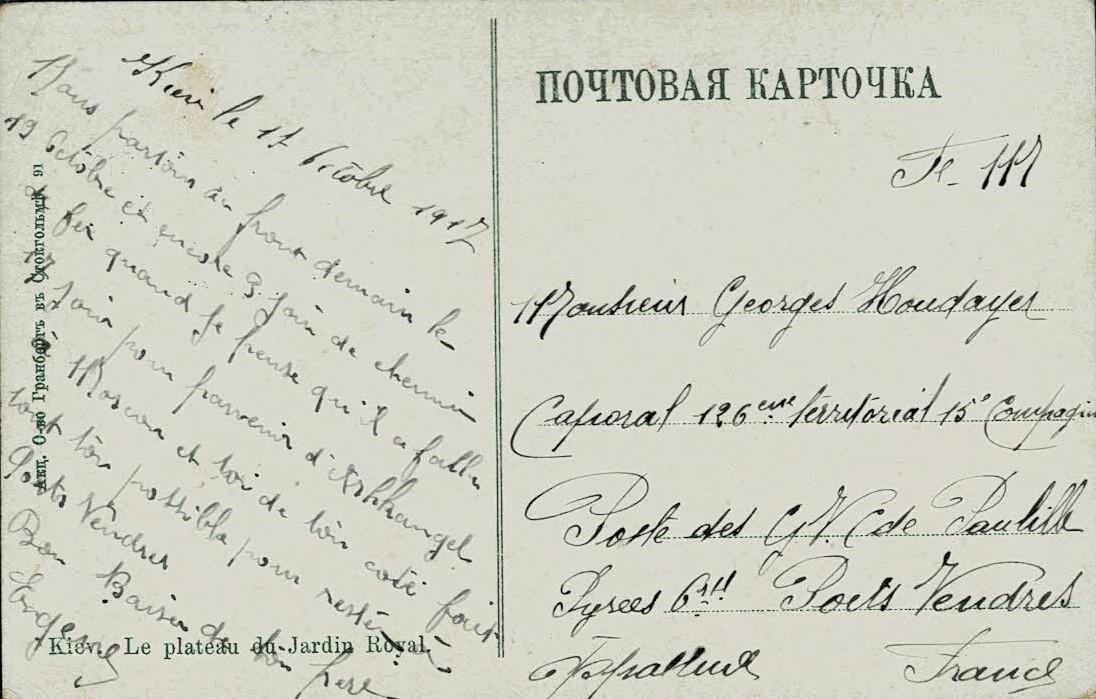 Kiew le 17 Octobre 1917
Nous partons au front demain le
19 Octobre et encore 3 Join de chemin
fer quand Je pense qu'il a fallu
17 Join pour parvenir d'Arkhangel
à Moscou et toi de ton coté fait
tout ton possible pour resté à
Ports Vendres
Bon Baiser de ton frere
Eugene
Акц. О-во Гранбергъ въ Стокгольмѣ 91
Kiev. Le plateau du Jardin Royal.
ПОЧТОВАЯ КАРТОЧКА
Monsieur Georges Houdayer
Caporal 126eme térritorial 15e Compagni
Poste des G.V.C de Paulille
Pyrees Orll Ports Vendres
France